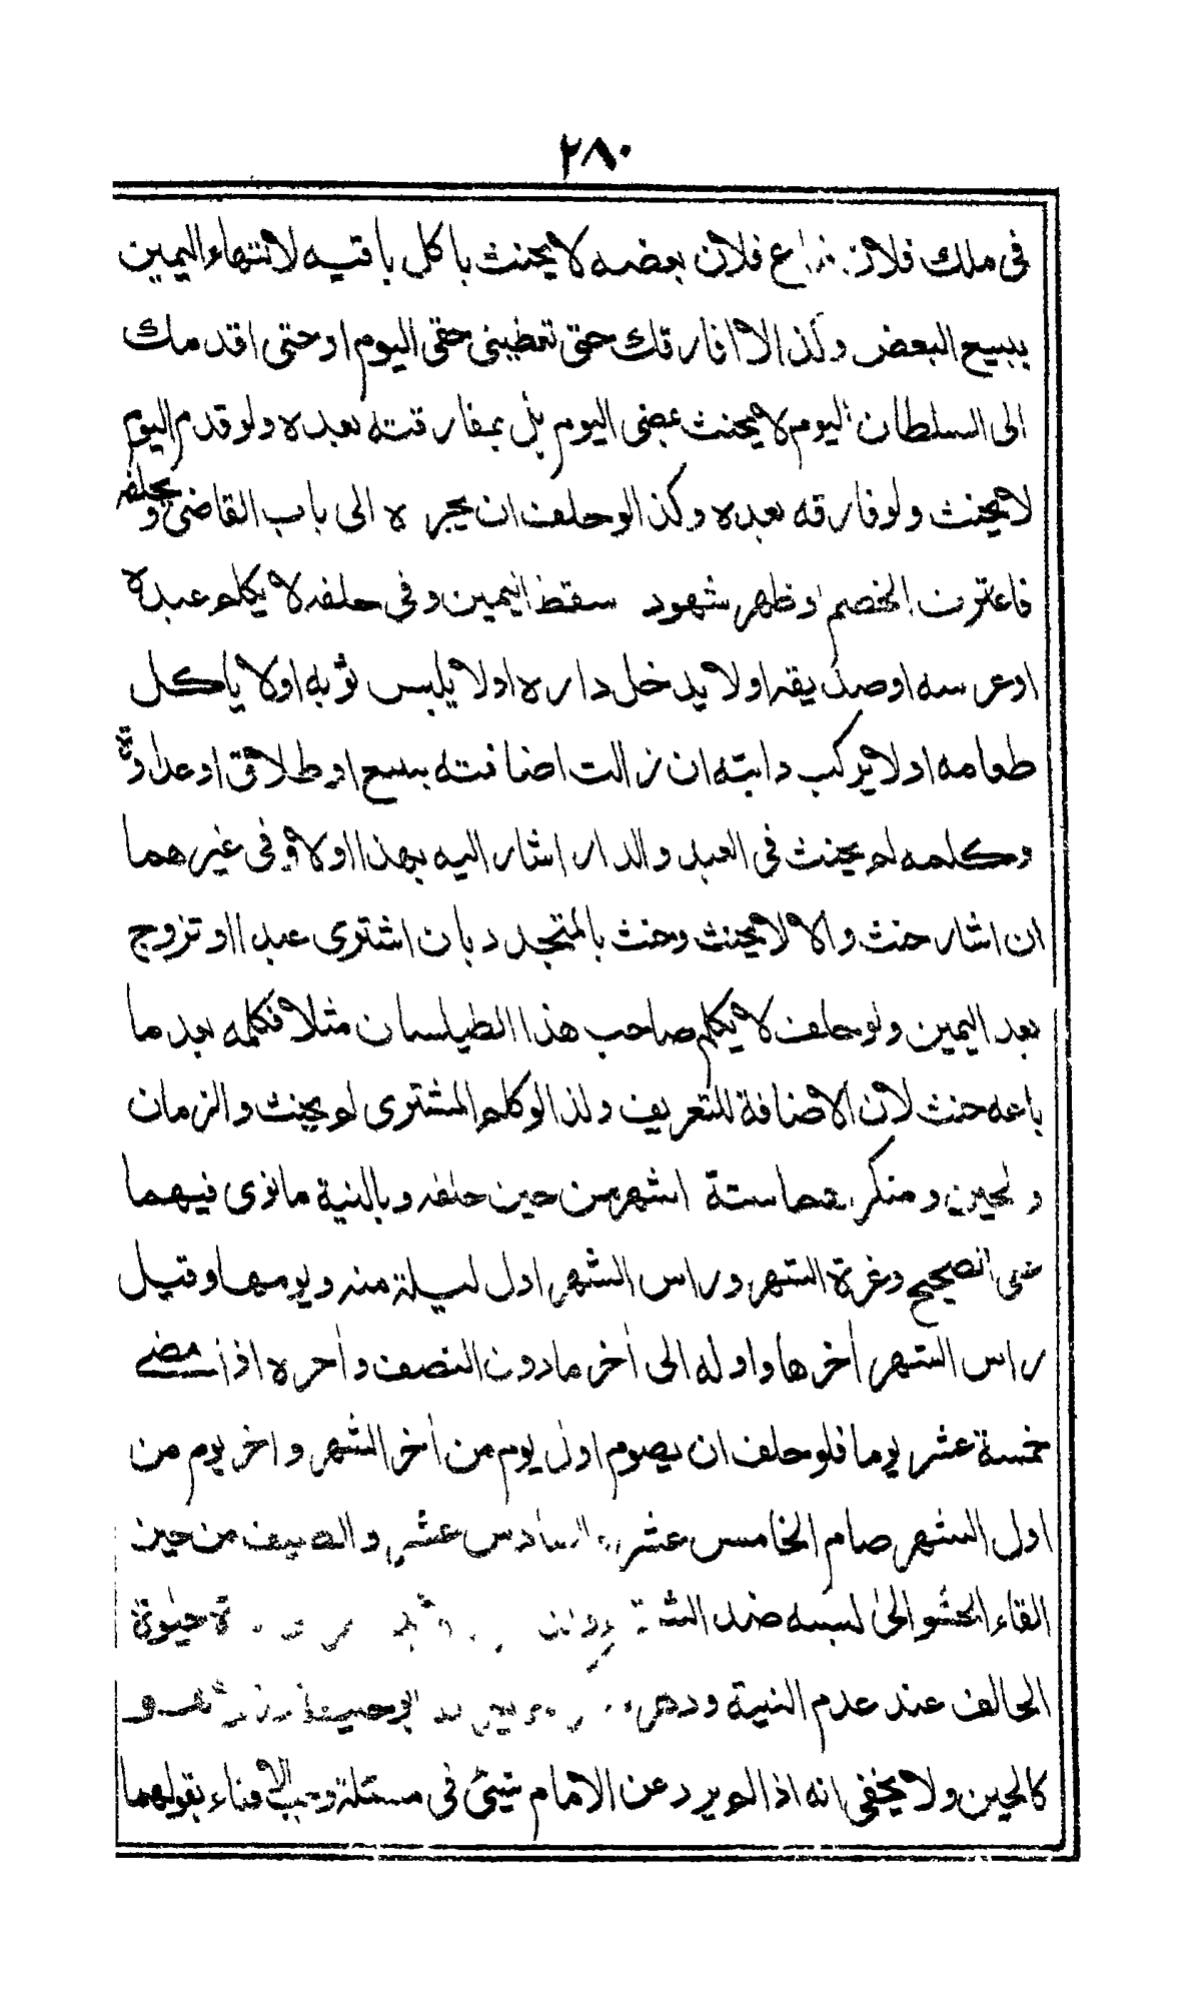 ٢٨٠
فى ملك فلان فباع فلان بعضه لا يحنث باكل باقيه لانتهاء اليمين
ببيع البعض وكذا لا افارقك حتى تعطينى حقى اليوم او حتى اقدمك
الى السلطان اليوم لا يحنث بمضى اليوم بل بمفارقته بعده ولو قدم اليوم
لا يحنث ولو فارقه بعده وكذا لو حلف ان يجره الى باب القاضى ويحلفه
فاعترف الخصم او ظهر شهود سقط اليمين وفى حلفه لا يكلم عبده
او عرسه او صديقه او لا يدخل داره او لا يلبس ثوبه او لا ياكل
طعامه او لا يركب دابته ان زالت اضافته ببيع او طلاق او عداوة
وكلمه لم يحنث فى العبد والدار اشار اليه بهذا او لا وفى غيرهما
ان اشار حنث والا لا يحنث وحنث بالمتجدد بان اشترى عبدا او تزوج
بعد اليمين ولو حلف لا يكلم صاحب هذا الطيلسان مثلا فكلمه بعد ما
باعه حنث لان الاضافة للتعريف ولذا لو كلم المشترى لم يحنث والزمان
والحين ومنكرهما ستة اشهر من حين حلفه وبالنية ما نوى فيهما
على الصحيح وغرة الشهر وراس الشهر اول ليلة منه ويومها وقيل
راس الشهر اخرها واوله الى اخر ما دون النصف واخره اذا مضى
خمسة عشر يوما فلو حلف ان يصوم اول يوم من اخر الشهر واخر يوم من
اول الشهر صام الخامس عشر والسادس عشر والصيف من حين
القاء الحشو الى لبسه ضد الشتاء حيوة
الحالف عند عدم النية ودهر
كالحين ولا يخفى انه اذا لم يرد عن الامام شيئ فى مسئلة وجب الافتاء بقولهما